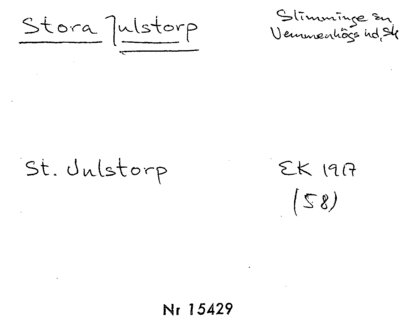 Stora Julstorp
Slimminge sn
Vemmenhögs hd, Sk
St. Julstorp
EK 1917
(58)
Nr 15429